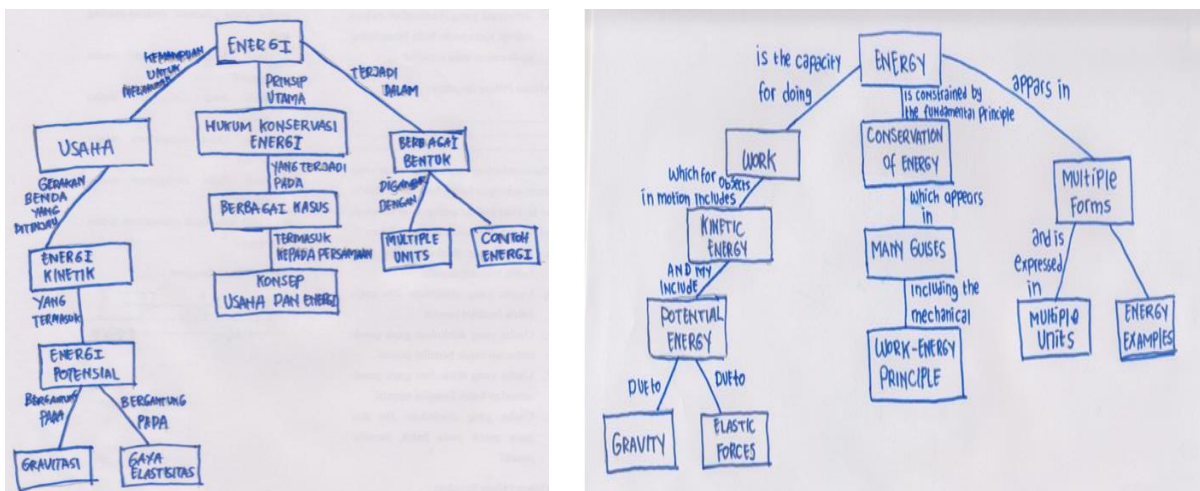 ENERGI
KEMAMPUAN
UNTUK
MELAKUKAN
PRINSIP
UTAMA
TERJADI
DALAM
USAHA
HUKUM KONSERVASI
ENERGI
BERBAGAI
BENTUK
GERAKAN
BENDA
YANG
DITINJAU
YANG TERJADI
PADA
DIGAMBAR
DENGAN
BERBAGAI KASUS
MULTIPLE
UNITS
CONTOH
ENERGI
ENERGI
KINETIK
TERMASUK
KEPADA PERSAMAAN
KONSEP
USAHA DAN ENERGI
YANG
TERMASUK
ENERGI
POTENSIAL
BERGANTUNG
PADA
BERGANTUNG
PADA
GRAVITASI
GAYA
ELASTISITAS
ENERGY
is the capacity
for doing
is constrained by
the fundamental principle
appars in
WORK
CONSERVATION
OF ENERGY
MULTIPLE
FORMS
which for objects
in motion includes
which appears
in
and is
expressed
in
KINETIC
ENERGY
MANY GUISES
AND MY
INCLUDE
including the
mechanical
POTENTIAL
ENERGY
WORK-ENERGY
PRINCIPLE
MULTIPLE
UNITS
ENERGY
EXAMPLES
DUE to
DUE to
GRAVITY
ELASTIC
FORCES